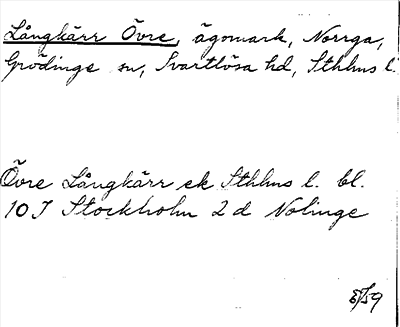 Långkärr Övre, ägomark, Norrga,
Grödinge sn, Svartlösa hd, Sthlms l.
Övre Långkärr ek Sthlms l. bl.
10 I Stockholm 2 d Nolinge
E/59